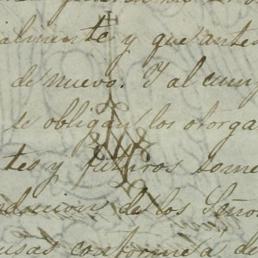 almente y que antes
de nuevo. Y al cum
se obligan los otorga
tes y futuros some
de los Seño
conforme á de